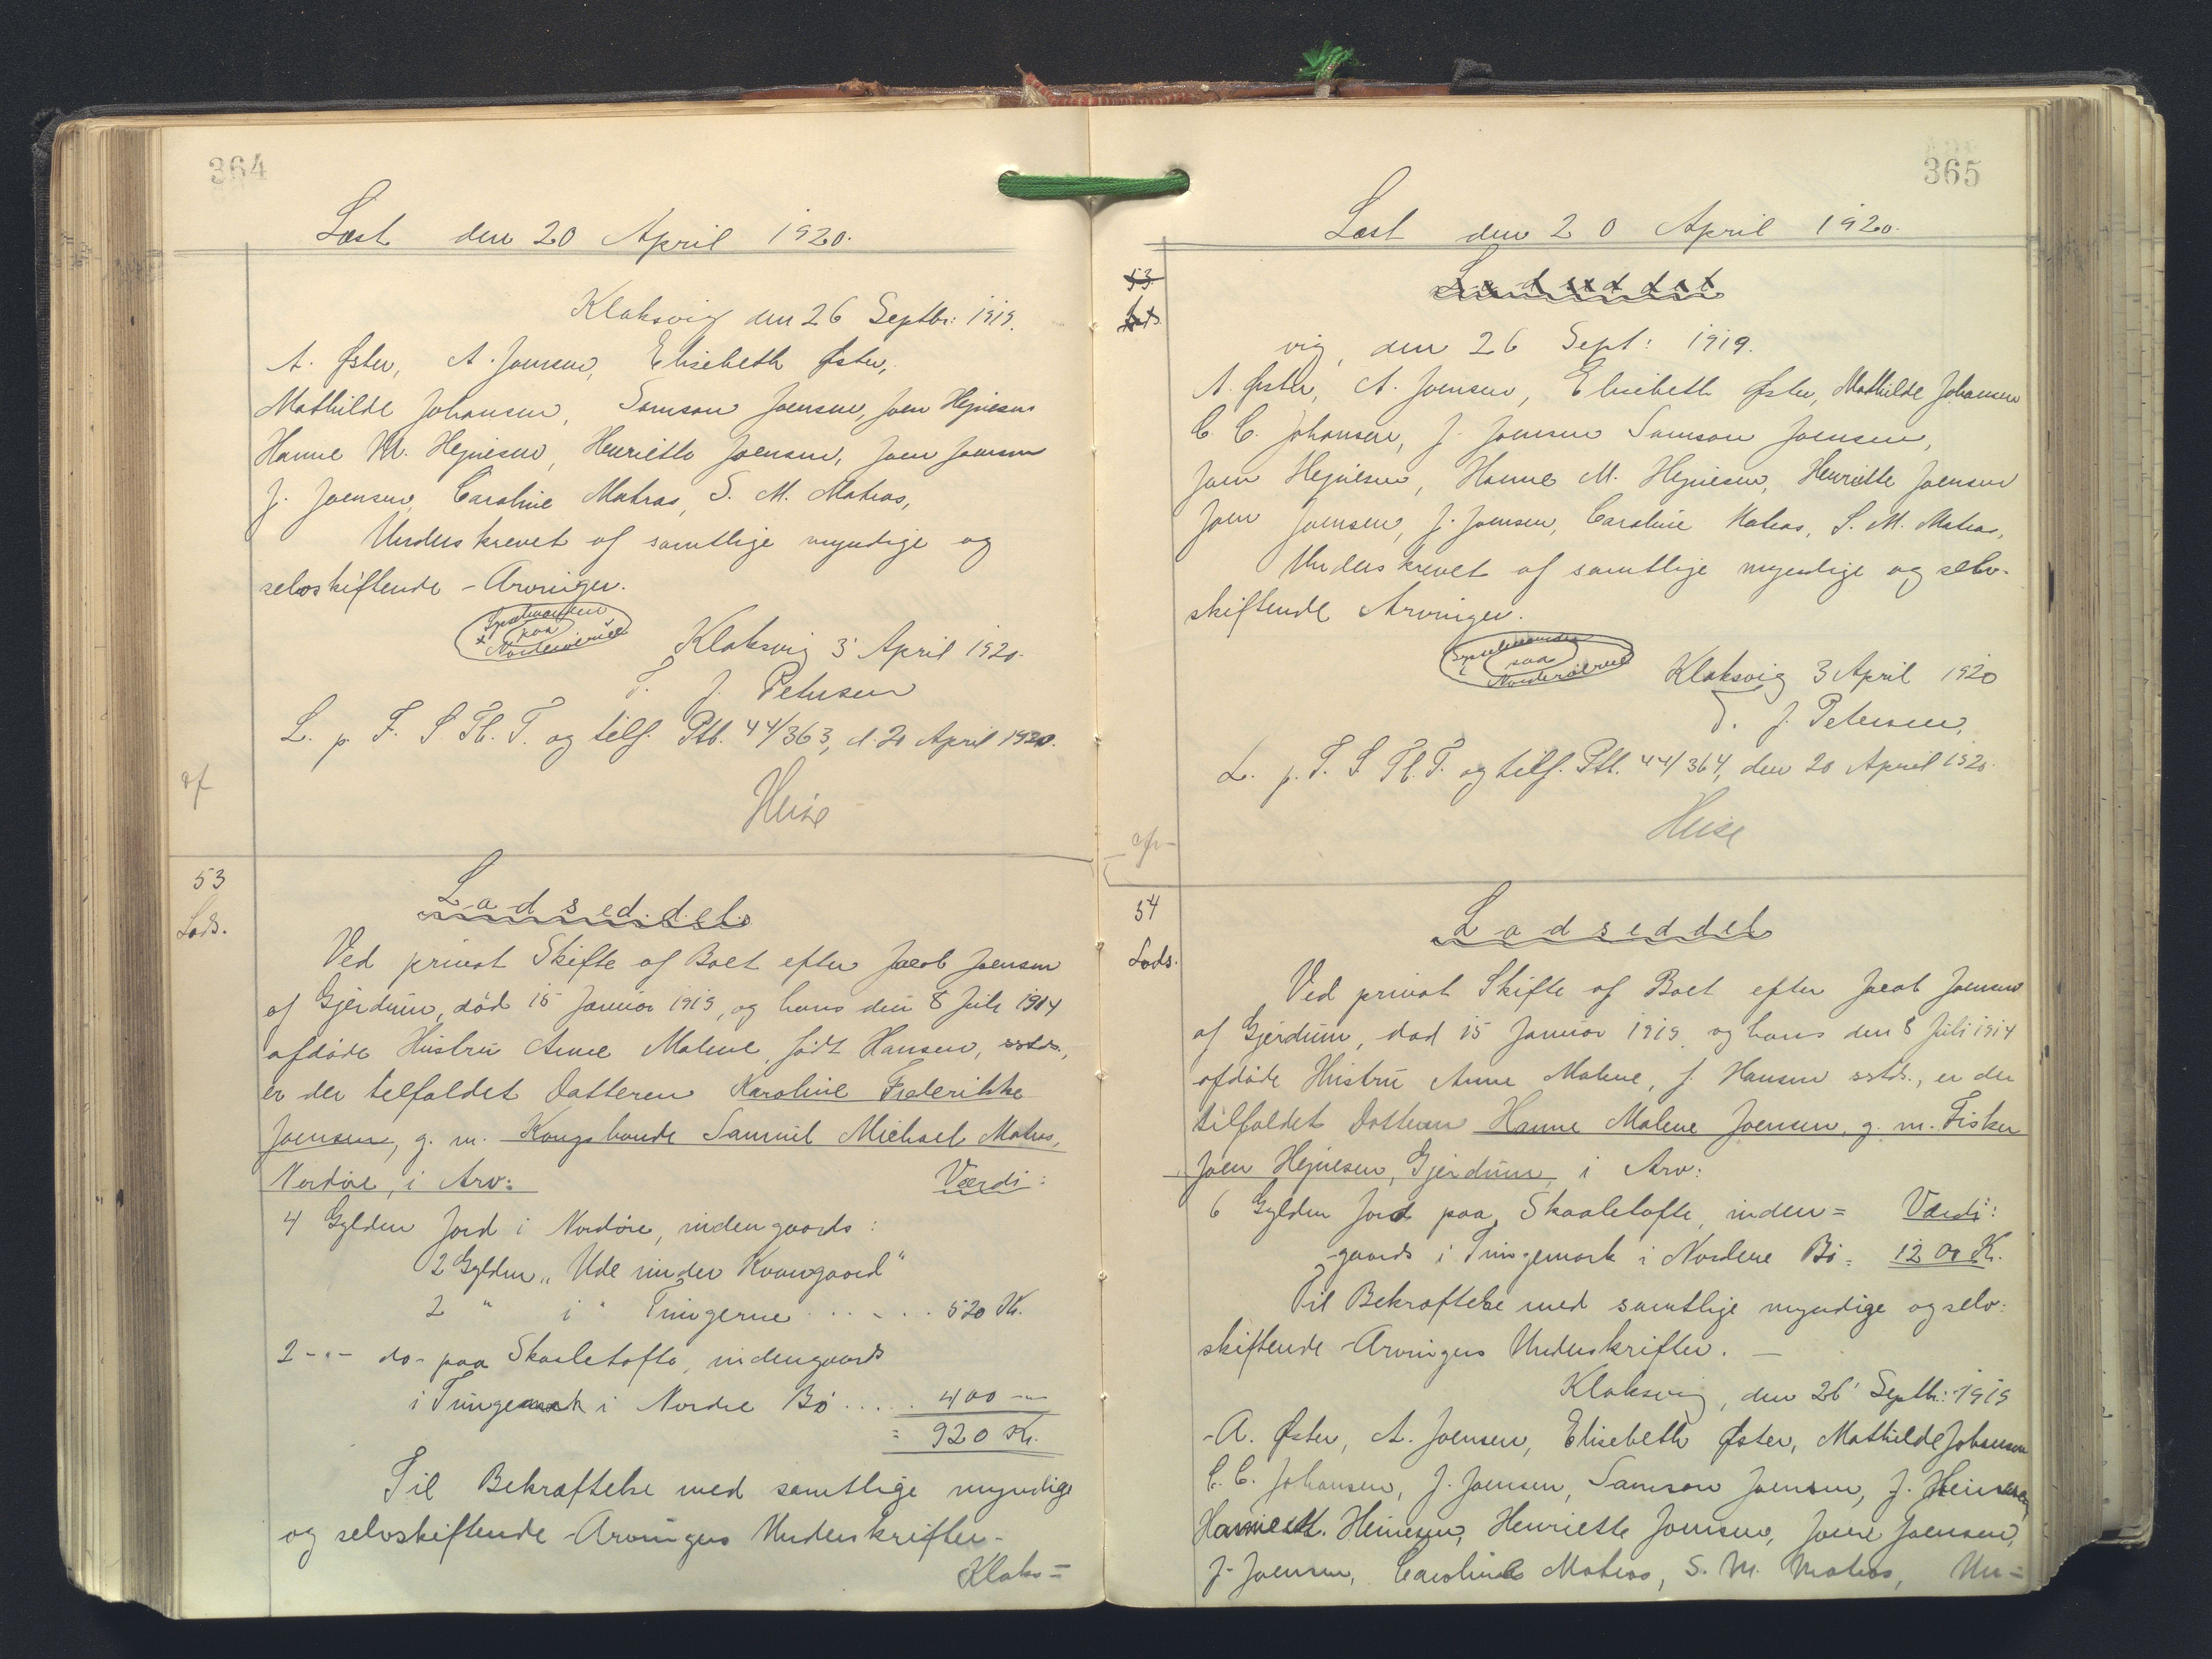 364
Læst den 20 April 1920.
Klaksvig den 26 Septbr: 1919.
A. Øster, A. Joensen, Elisebeth Øster,
Mathilde Johansen, Samson Joensen, Joen Hejnesen
Hanne M. Hejnesen, Henriette Joensen, Joen Joensen
J. Joensen, Caroline Matras, S. M. Matras,
Underskrevet af samtlige myndige og
selvskiftende Arvinger.
Sysselmanden
paa
Norderøerne
Klaksvig 3 April 1920.
T. J. Petersen
L. p. F. S Tb. T. og tilf. Ptb. 44/363, d. 20 April 1920.
af
Heise
53
Lods.
Lodseddel
Ved privat Skifte af Boet efter Jacob Joensen
af Gjerdum, død 15 Januar 1919, og hans den 8 Juli 1914
afdøde Hustru Anne Malene, født Hansen, sstds.,
er der tilfaldet Datteren Karoline Frederikke
Joensen, g. m. Kongsbonde Samuel Michael Matras,
Nordøre, i Arv:
Værdi:
4 Gylden Jord i Nordøre, indengaards:
2 Gylden „Ude under Kvangaard"
2 " i " Tungerne . . . . . . 520 Kr.
2 -"- do- paa Skaaletofte, indengaards
i Tungemark i Nordre Bø . . . . . 400 -"-
= 920 Kr.
Til Bekræftelse med samtlige myndige
og selvskiftende Arvingers Underskrifter.
Klaks=
365
Læst den 20 April 1920.
53
Lods.
Lodseddel
vig, den 26 Sept: 1919.
A. Øster, A. Joensen, Elisebeth Øster, Mathilde Johansen
C. C. Johansen, J. Joensen Samson Joensen,
Joen Hejnesen, Hanne M. Hejnesen, Henriette Joensen
Joen Joensen, J. Joensen, Caroline Matras, S. M. Matras,
Underskrevet af samtlige myndige og selv-
skiftende Arvinger.
Sysselmanden
paa
Norderøerne
Klaksvig 3 April 1920
T. J. Petersen,
L. p. F. S Tb. T. og tilf. Ptb. 44/364, den 20 April 1920.
Heise
54
Lods.
Lodseddel
Ved privat Skifte af Boet efter Jacob Joensen
af Gjerdum, død 15 Januar 1919 og hans den 8 Juli 1914
afdøde Hustru Anne Malene, f. Hansen sstds., er der
tilfaldet Datteren Hanne Malene Joensen, g. m. Fisker
Joen Hejnesen, Gjerdum, i Arv:
6 Gylden Jord paa Skaaletofte, inden= Værdi:
gaards i Tungemark i Nordre Bø = 1200 Kr.
Til Bekræftelse med samtlige myndige og selv-
skiftende Arvingers Underskrifter. —
Klaksvig, den 26' Septbr: 1919
A. Øster, A. Joensen, Elisebeth Øster, Mathilde Johansen
C. C. Johansen, J. Joensen, Samson Joensen, J. Heinesen,
Hanne M. Heinesen, Henriette Joensen, Joen Joensen,
J. Joensen, Caroline Matras, S. M. Matras, Un=